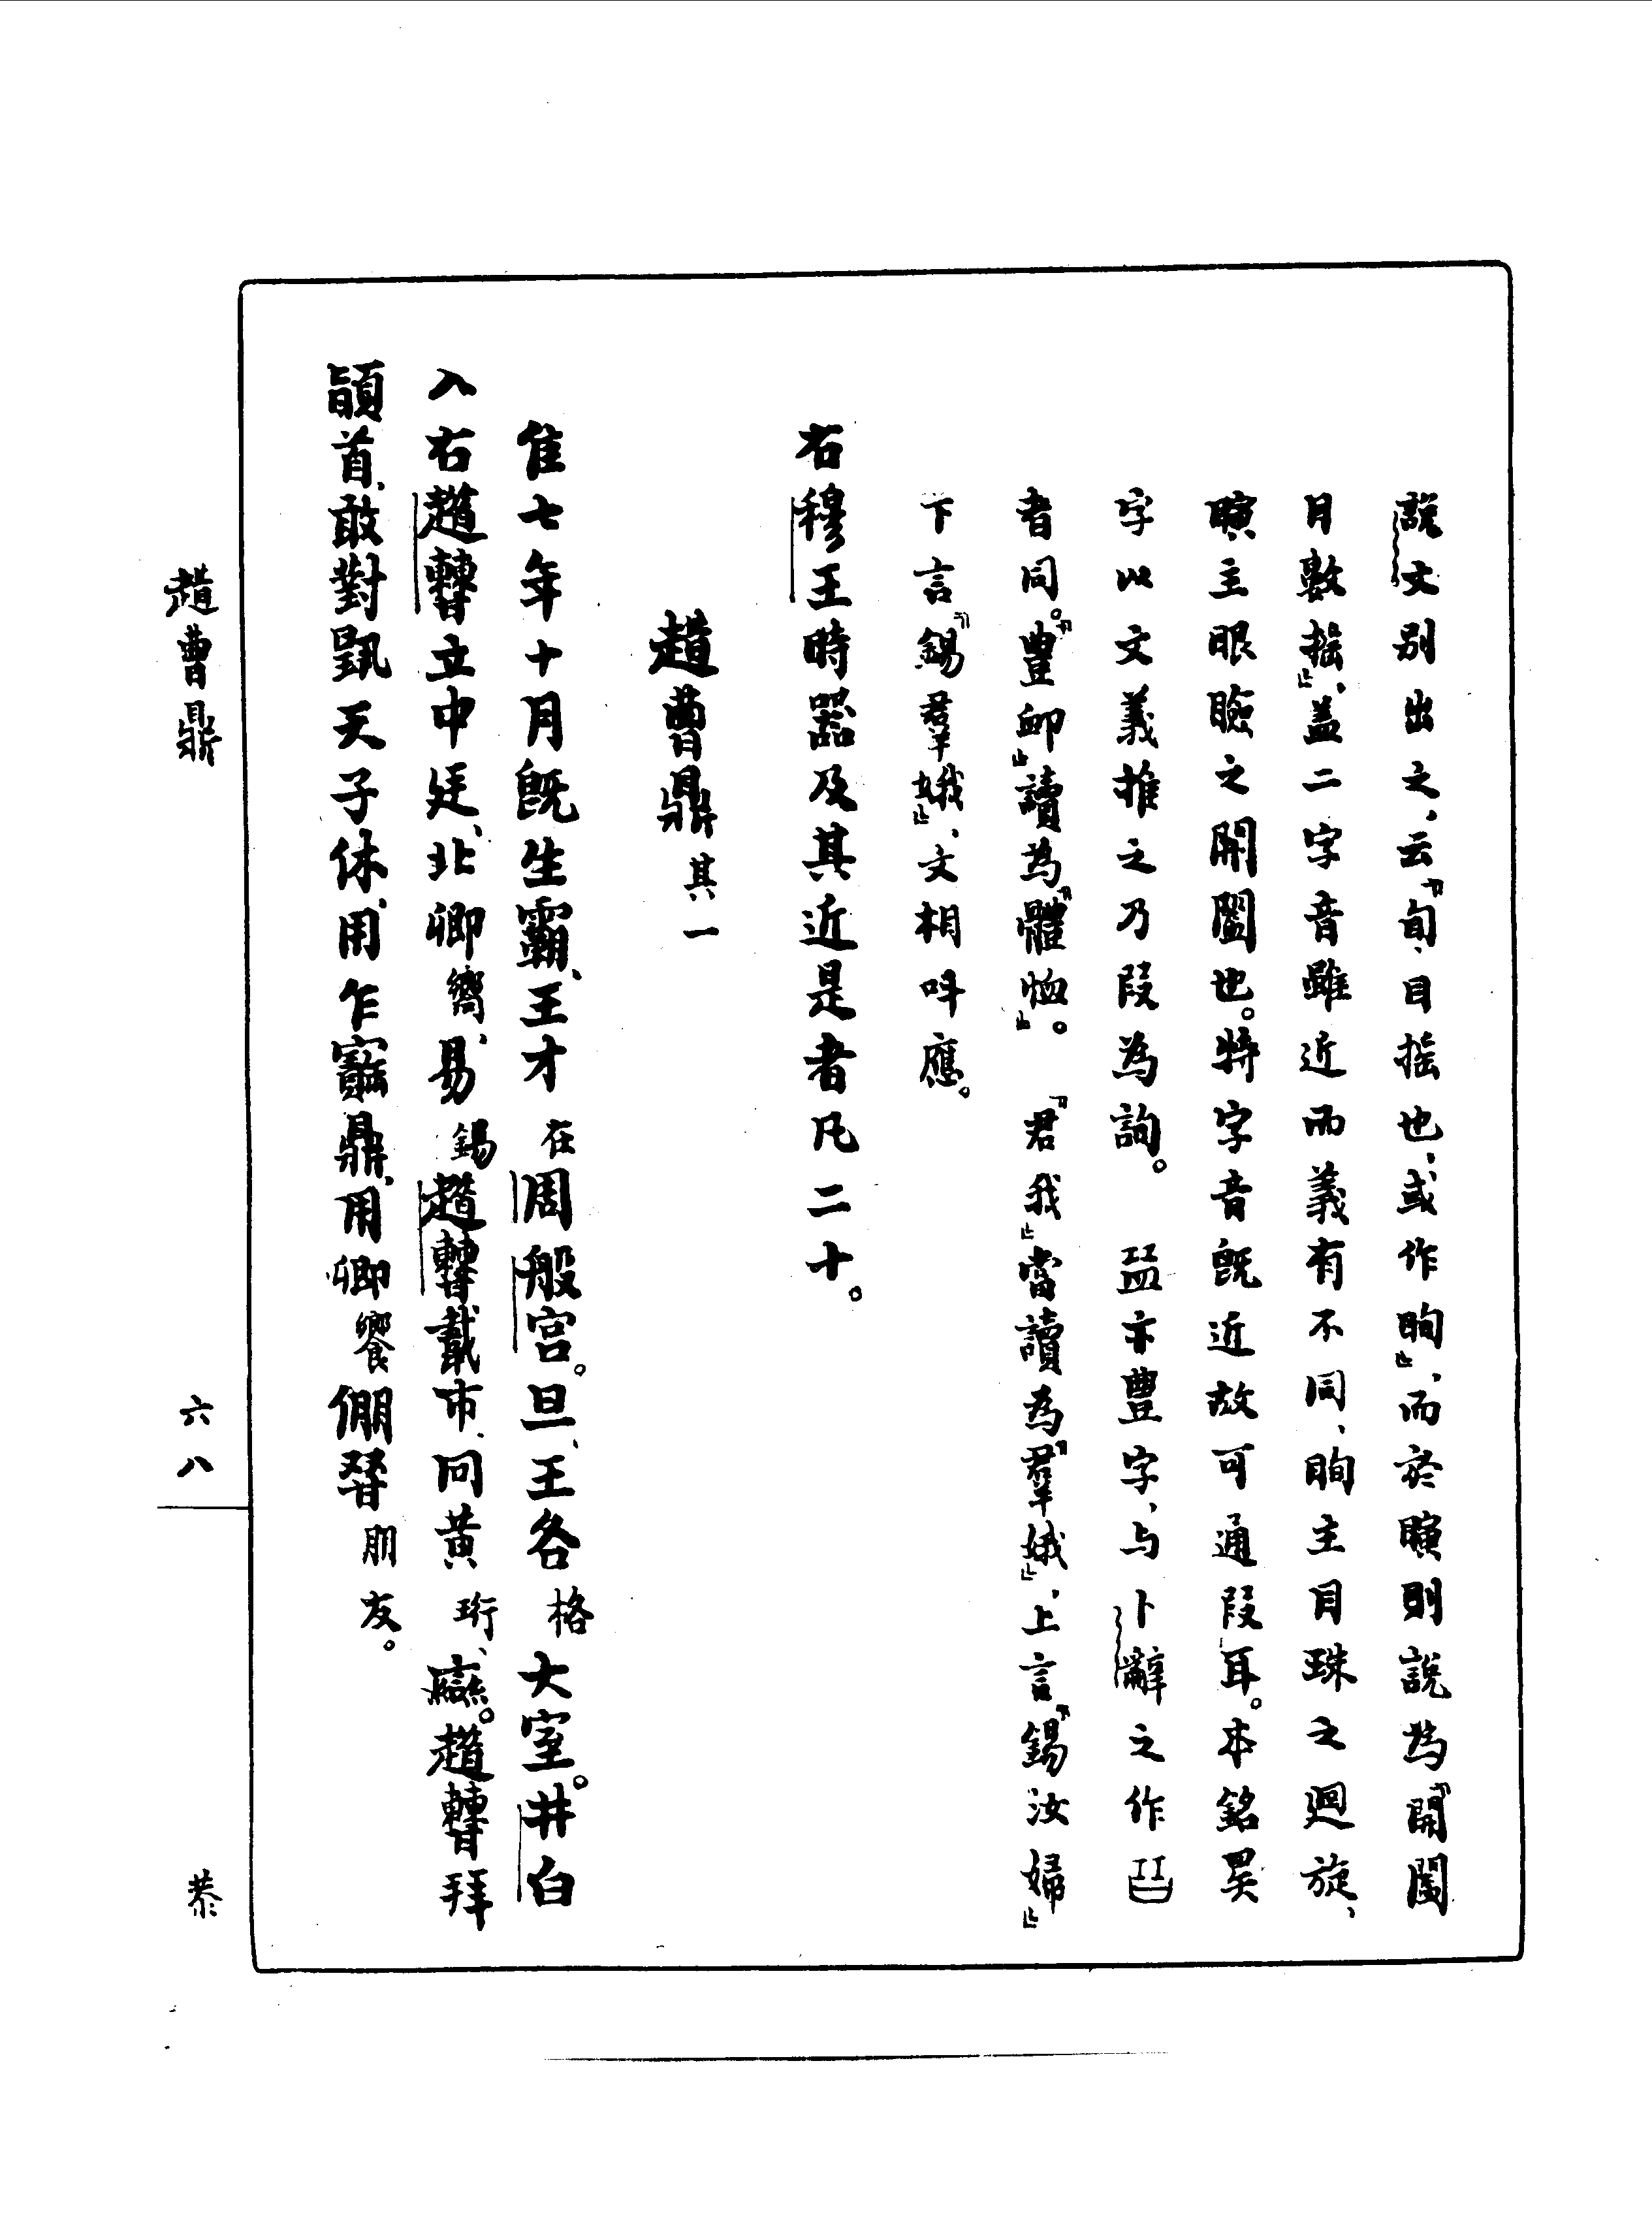 說文別出之、云『旬、目搖也、或作眴』、而於瞚則說為『開闔
目數搖』、蓋二字音雖近而義有不同、眴主目珠之迴旋、
瞚主眼瞼之開闔也。特字音既近故可通叚耳。本銘
字以文義推之乃叚為詢。 亦豐字、与卜辭之作
者同。『豐卹』讀為『體恤』。 『君我』當讀為『羣娥』、上言『錫汝婦』
下言『錫羣娥』、文相呼應。
右穆王時器及其近是者凡二十。
趞曹鼎其一
隹七年十月既生霸、王才在周般宮。旦、王各格大室。井白
入右趞曹立中廷、北卿嚮、易錫趞曹韍市、冋黄珩、䜌。趞曹拜
頴首、敢對天子休、用乍寶鼎、用卿饗倗朋友。
趞曹鼎
六八